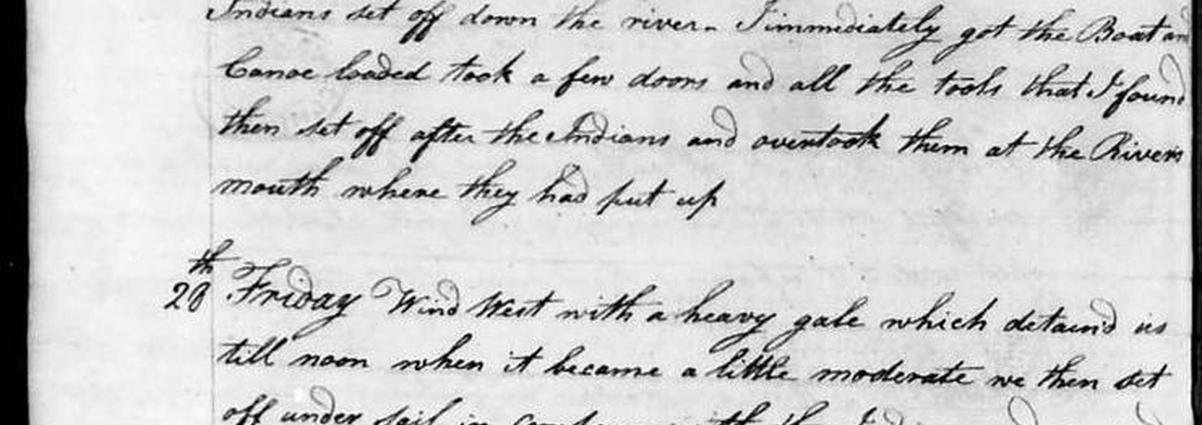 Indians set off down the river. I immediately got the Boat and
Canoe loaded took a few doors and all the tools that I found
then set off after the Indians and overtook them at the Rivers
mouth where they had put up
th
28 Friday Wind West with a heavy gale which detaind us
till noon when it became a little moderate we then set
off under sail in company with the